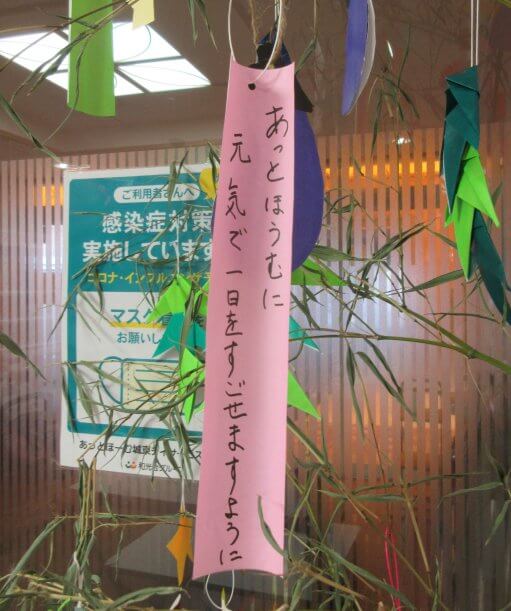 あっとほうむに
元気で一日をすごせますように
ご利用者さんへ
感染症対策
実施しています
コロナ・インフル
マスク
お願いし
あっとほーむ城東デイサービス